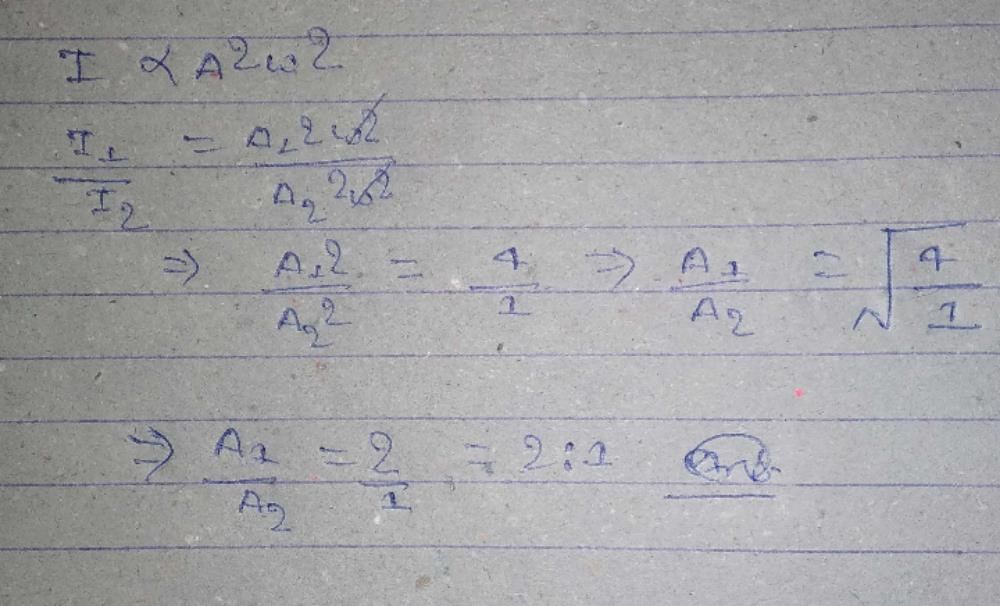 I ∝ A²ω²
I₁/I₂ = A₁²ω²/A₂²ω²
⇒ A₁²/A₂² = 4/1 ⇒ A₁/A₂ = √(4/1)
⇒ A₁/A₂ = 2/1 = 2:1 Ans